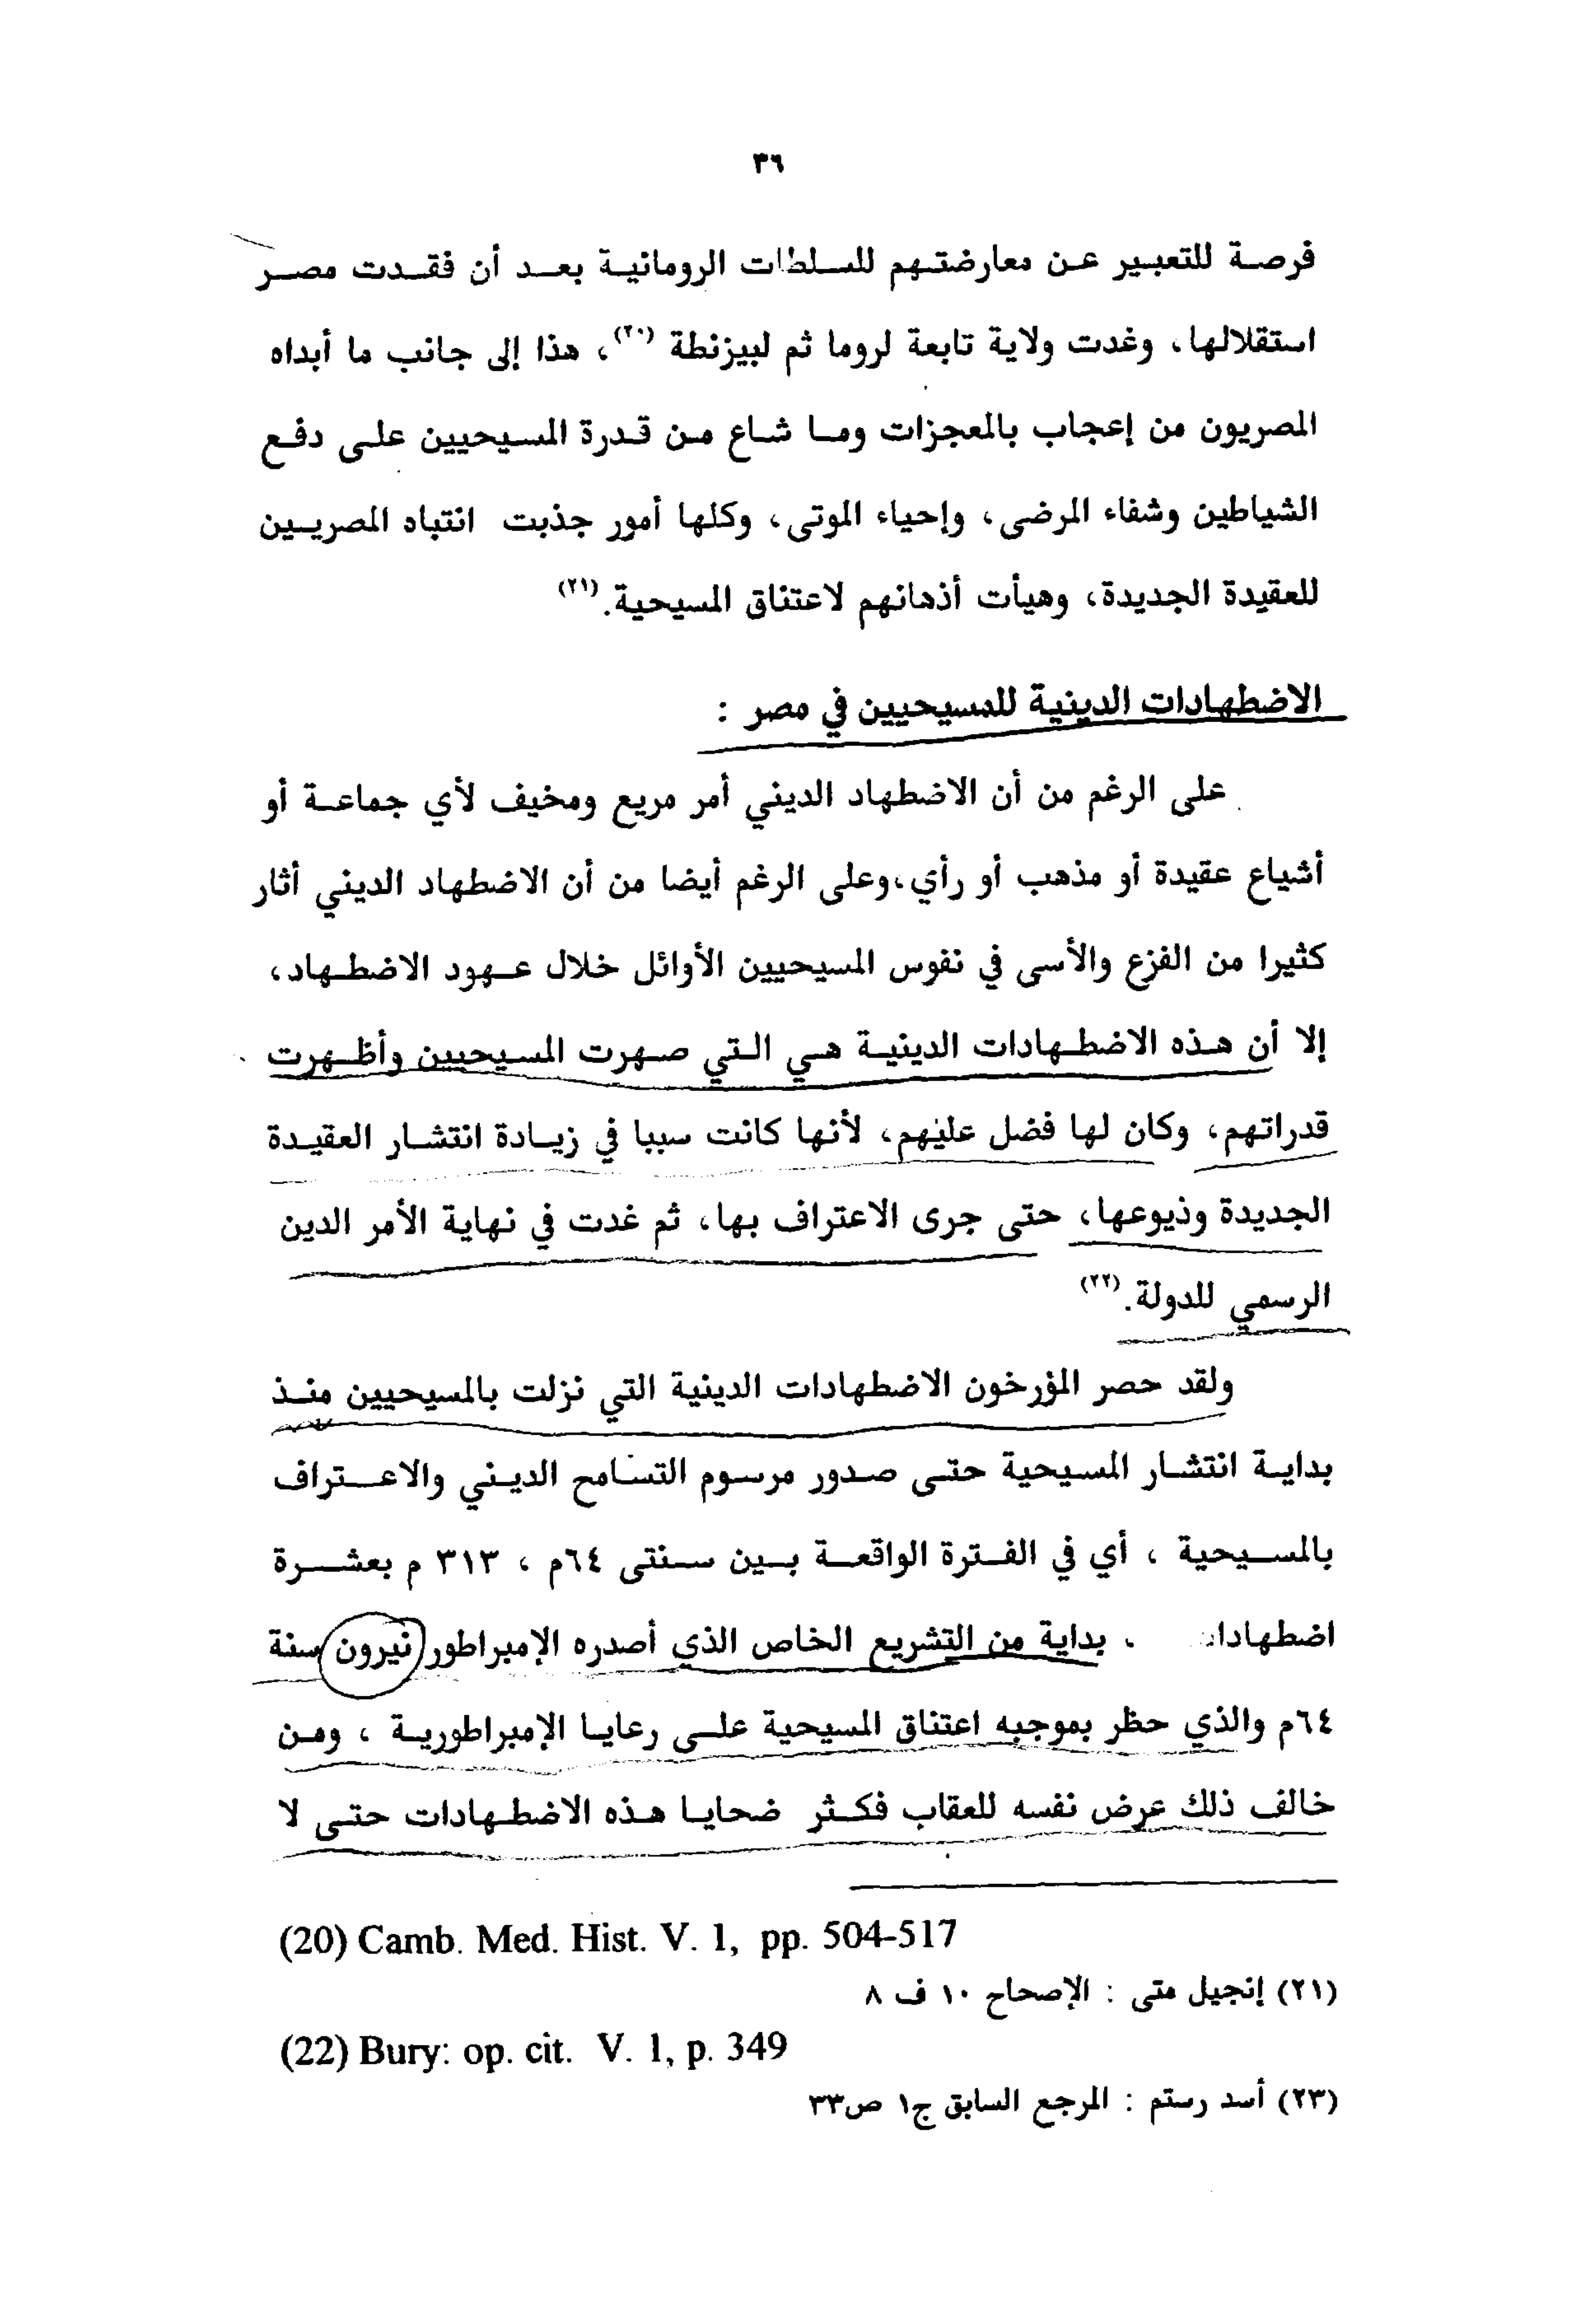 ٣٦
فرصة للتعبير عن معارضتهم للسلطات الرومانية بعد أن فقدت مصر
استقلالها، وغدت ولاية تابعة لروما ثم لبيزنطة (٢٠)، هذا إلى جانب ما أبداه
المصريون من إعجاب بالمعجزات وما شاع من قدرة المسيحيين على دفع
الشياطين وشفاء المرضى، وإحياء الموتى، وكلها أمور جذبت انتباه المصريين
للعقيدة الجديدة، وهيأت أذهانهم لاعتناق المسيحية.(٢١)
الاضطهادات الدينية للمسيحيين في مصر :
على الرغم من أن الاضطهاد الديني أمر مريع ومخيف لأي جماعة أو
أشياع عقيدة أو مذهب أو رأي،وعلى الرغم أيضا من أن الاضطهاد الديني أثار
كثيرا من الفزع والأسى في نفوس المسيحيين الأوائل خلال عهود الاضطهاد،
إلا أن هذه الاضطهادات الدينية هي التي صهرت المسيحيين وأظهرت
قدراتهم، وكان لها فضل عليهم، لأنها كانت سببا في زيادة انتشار العقيدة
الجديدة وذيوعها، حتى جرى الاعتراف بها، ثم غدت في نهاية الأمر الدين
الرسمي للدولة.(٢٢)
ولقد حصر المؤرخون الاضطهادات الدينية التي نزلت بالمسيحيين منذ
بداية انتشار المسيحية حتى صدور مرسوم التسامح الديني والاعتراف
بالمسيحية ، أي في الفترة الواقعة بين سنتى ٦٤م ، ٣١٣ م بعشرة
، بداية من التشريع الخاص الذي أصدره الإمبراطور نيرون سنة
٦٤م والذي حظر بموجبه اعتناق المسيحية على رعايا الإمبراطورية ، ومن
خالف ذلك عرض نفسه للعقاب فكثر ضحايا هذه الاضطهادات حتى لا
(20) Camb. Med. Hist. V. 1, pp. 504-517
(٢١) إنجيل متى : الإصحاح ١٠ ف ٨
(22) Bury: op. cit. V. 1, p. 349
(٢٣) أسد رستم : المرجع السابق ج١ ص٣٣